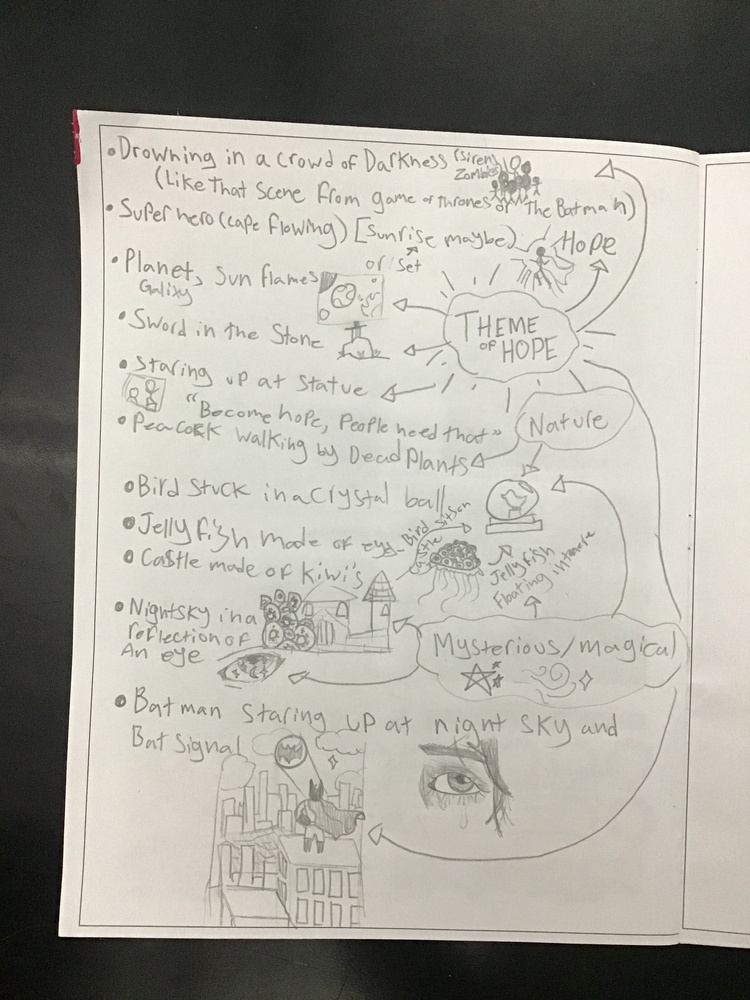 • Drowning in a crowd of Darkness (Sirens
Zombies)
(Like That Scene from game of thrones or The Batman)
• Super hero (cape flowing) [Sunrise maybe)
or Set
Hope
• Planet, Sun flames
Galixy
THEME
OF HOPE
• Sword in the Stone
• Staring up at Statue
"Become hope, People need that"
Nature
• Peacock walking by Dead Plants
• Bird Stuck in a Crystal ball
• Jelly fish made of eyes
Bird sits on
Castle
Jelly fish
Floating in there
• Castle made of kiwi's
• Nightsky in a
reflection of
An eye
Mysterious/magical
• Batman Staring up at night sky and
Bat Signal